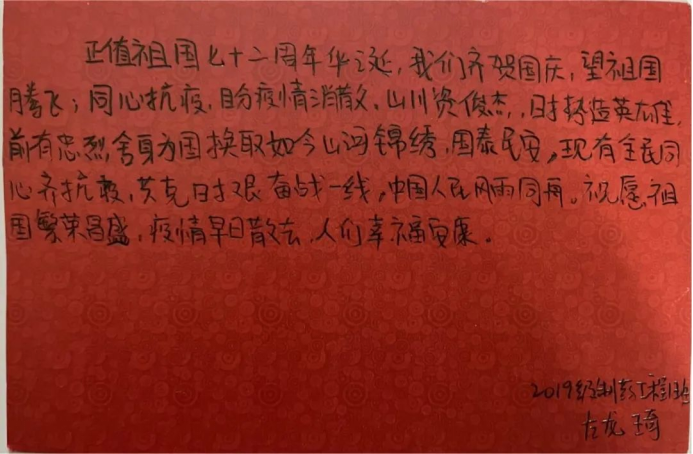 正值祖国七十二周年华诞，我们齐贺国庆，望祖国
腾飞；同心抗疫，盼疫情消散。山川赍俊杰，时势造英雄，
前有忠烈舍身为国换取如今山河锦绣，国泰民安，现有全民同
心齐抗疫，共克时艰奋战一线，中国人民风雨同舟。祝愿祖
国繁荣昌盛，疫情早日散去，人们幸福安康。
2019级制药工程班
左龙琦